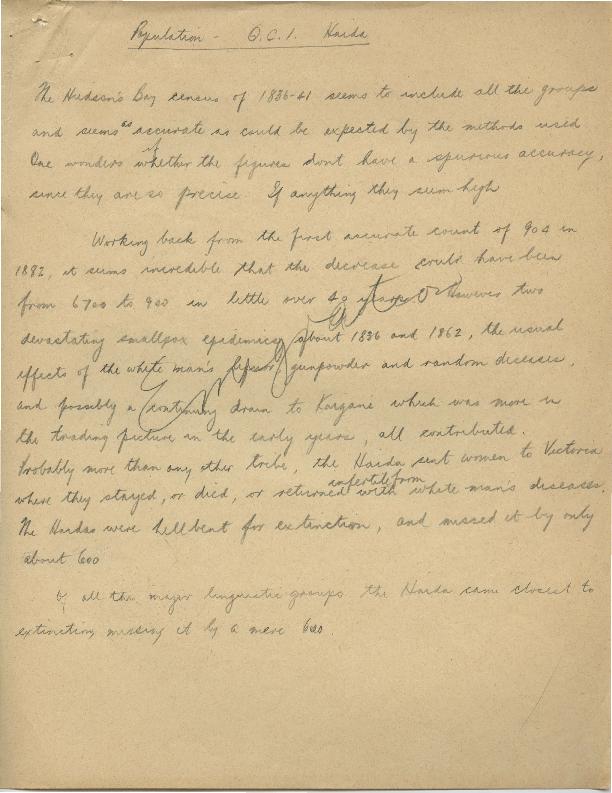 Population - Q.C.I. Haida
The Hudson's Bay census of 1836-41 seems to include all the groups
and seems as accurate as could be expected by the methods used.
One wonders if whether the figures dont have a spurious accuracy,
since they are so precise. If anything they seem high
Working back from the first accurate count of 904 in
1882, it seems incredible that the decrease could have been
from 6700 to 900 in little over 40 years. However two
devastating smallpox epidemics, about 1836 and 1862, the usual
effects of the white man's liquor, gunpowder and random diseases,
and possibly a continuing drain to Kargani which was more in
the trading picture in the early years, all contributed.
Probably more than any other tribe, the Haida sent women to Victoria
where they stayed, or died, or returned with infertile from white man's diseases.
The Haidas were hellbent for extinction, and missed it by only
about 600
Of all the major linguistic groups the Haida came closest to
extinction, missing it by a mere 600.